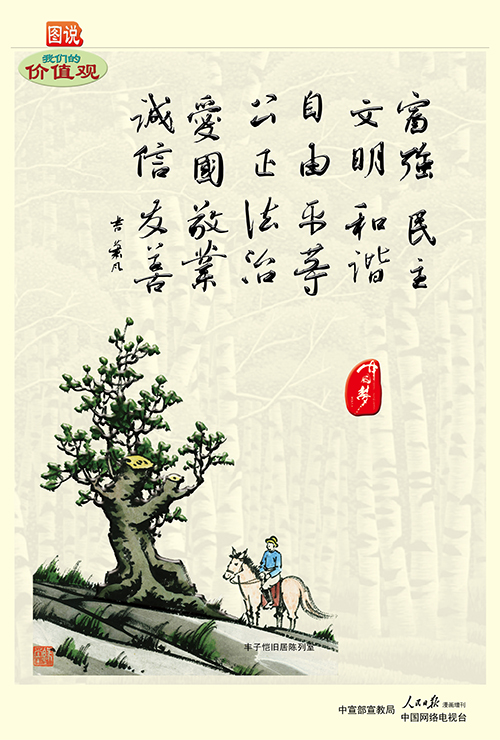 图说
我们的
价值观
富强 民主
文明 和谐
自由 平等
公正 法治
愛國 敬業
诚信 友善
吉 葉凡
中国梦
丰子恺旧居陈列室
中宣部宣教局
人民日报 漫画增刊
中国网络电视台